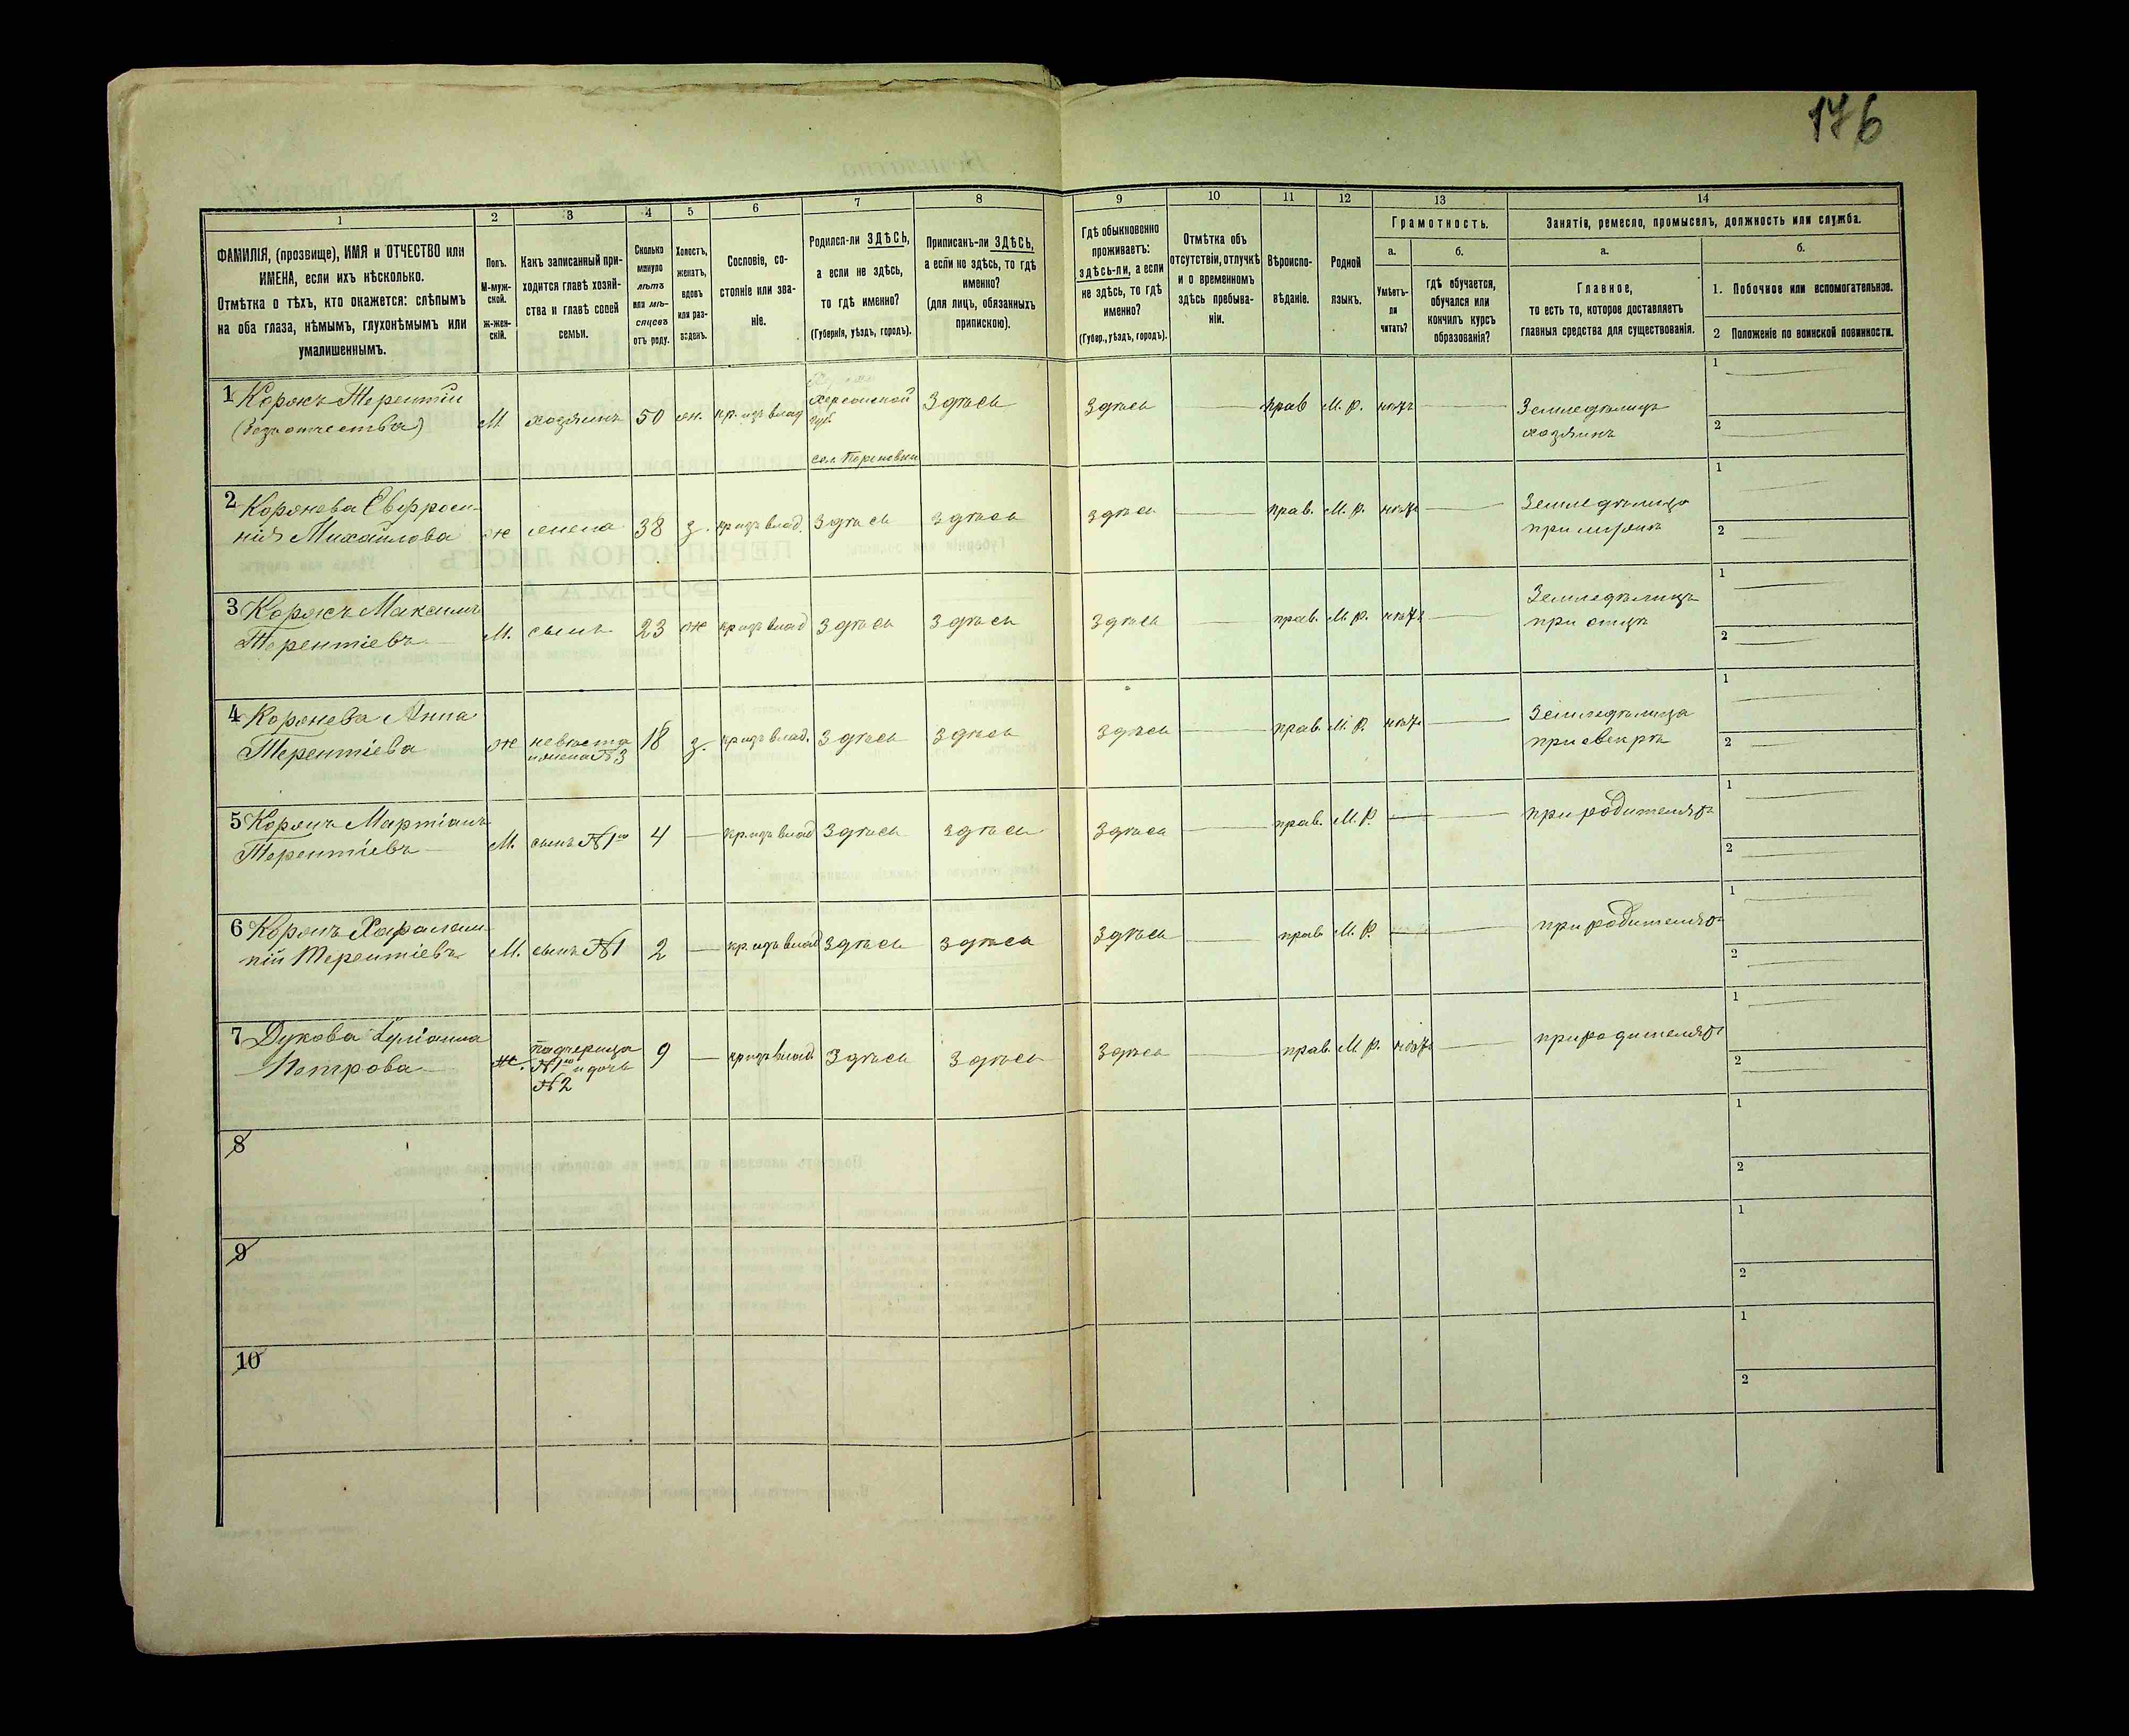 176
1
2
3
4
5
6
7
8
9
10
11
12
13
14
ФАМИЛІЯ, (прозвище), ИМЯ и ОТЧЕСТВО или
ИМЕНА, если ихъ нѣсколько.
Отмѣтка о тѣхъ, кто окажется: слѣпымъ
на оба глаза, нѣмымъ, глухонѣмымъ или
умалишеннымъ.
Полъ.
М-муж-
ской.
ж-жен-
скій.
Какъ записанный при-
ходится главѣ хозяй-
ства и главѣ своей
семьи.
Сколько
минуло
лѣтъ
или мѣ-
сяцевъ
отъ роду.
Холостъ,
женатъ,
вдовъ
или раз-
веденъ.
Сословіе, со-
стояніе или зва-
ніе.
Родился-ли ЗДѢСЬ,
а если не здѣсь,
то гдѣ именно?
(Губернія, уѣздъ, городъ).
Приписанъ-ли ЗДѢСЬ,
а если не здѣсь, то гдѣ
именно?
(для лицъ, обязанныхъ
припискою).
Гдѣ обыкновенно
проживаетъ:
здѣсь-ли, а если
не здѣсь, то гдѣ
именно?
(Губер., уѣздъ, городъ).
Отмѣтка объ
отсутствіи, отлучкѣ
и о временномъ
здѣсь пребыва-
ніи.
Вѣроиспо-
вѣданіе.
Родной
языкъ.
Грамотность.
а.
Умѣетъ-
ли
читать?
б.
гдѣ обучается,
обучался или
кончилъ курсъ
образованія?
Занятія, ремесло, промыселъ, должность или служба.
а.
Главное,
то есть то, которое доставляетъ
главныя средства для существованія.
б.
1. Побочное или вспомогательное.
2 Положеніе по воинской повинности.
1 Коржъ Терентій
(Безъ отчества)
М
хозяинъ
50
ж.
кр. изъ влад
Херсонской
губ.
здѣсь
здѣсь
прав
М. р.
нѣтъ
Земледѣлецъ
хозяинъ
1
2
2 Коржева Евфроси-
нія Михайлова
ж
жена
38
з.
кр изъ влад.
здѣсь
здѣсь
здѣсь
прав.
М. р.
нѣтъ
Земледѣлица
при мужѣ
1
2
3 Коржъ Максимъ
Терентіевъ
М.
сынъ
23
ж
кр изъ влад
здѣсь
здѣсь
здѣсь
прав.
М. р.
нѣтъ
Земледѣлецъ
при отцѣ
1
2
4 Коржева Анна
Терентіева
ж
невѣста
и жена №3
18
з.
кр изъ влад.
здѣсь
здѣсь
здѣсь
прав.
М. р.
нѣтъ
Земледѣлица
при свекрѣ
1
2
5 Коржъ Мартіанъ
Терентіевъ
М.
сынъ №1го
4
кр. изъ влад
здѣсь
здѣсь
здѣсь
прав.
М. р.
при родителяхъ
1
2
6 Коржъ Харалам
пій Терентіевъ
М.
сынъ №1
2
кр. изъ влад
здѣсь
здѣсь
здѣсь
прав
М. р.
при родителяхъ
1
2
7 Дукова Іуліанна
Петрова
Ж.
падчерица
№1го и дочь
№2
9
кр изъ влад.
здѣсь
здѣсь
здѣсь
прав.
М. р.
нѣтъ
при родителяхъ
1
2
8
1
2
9
1
2
10
1
2